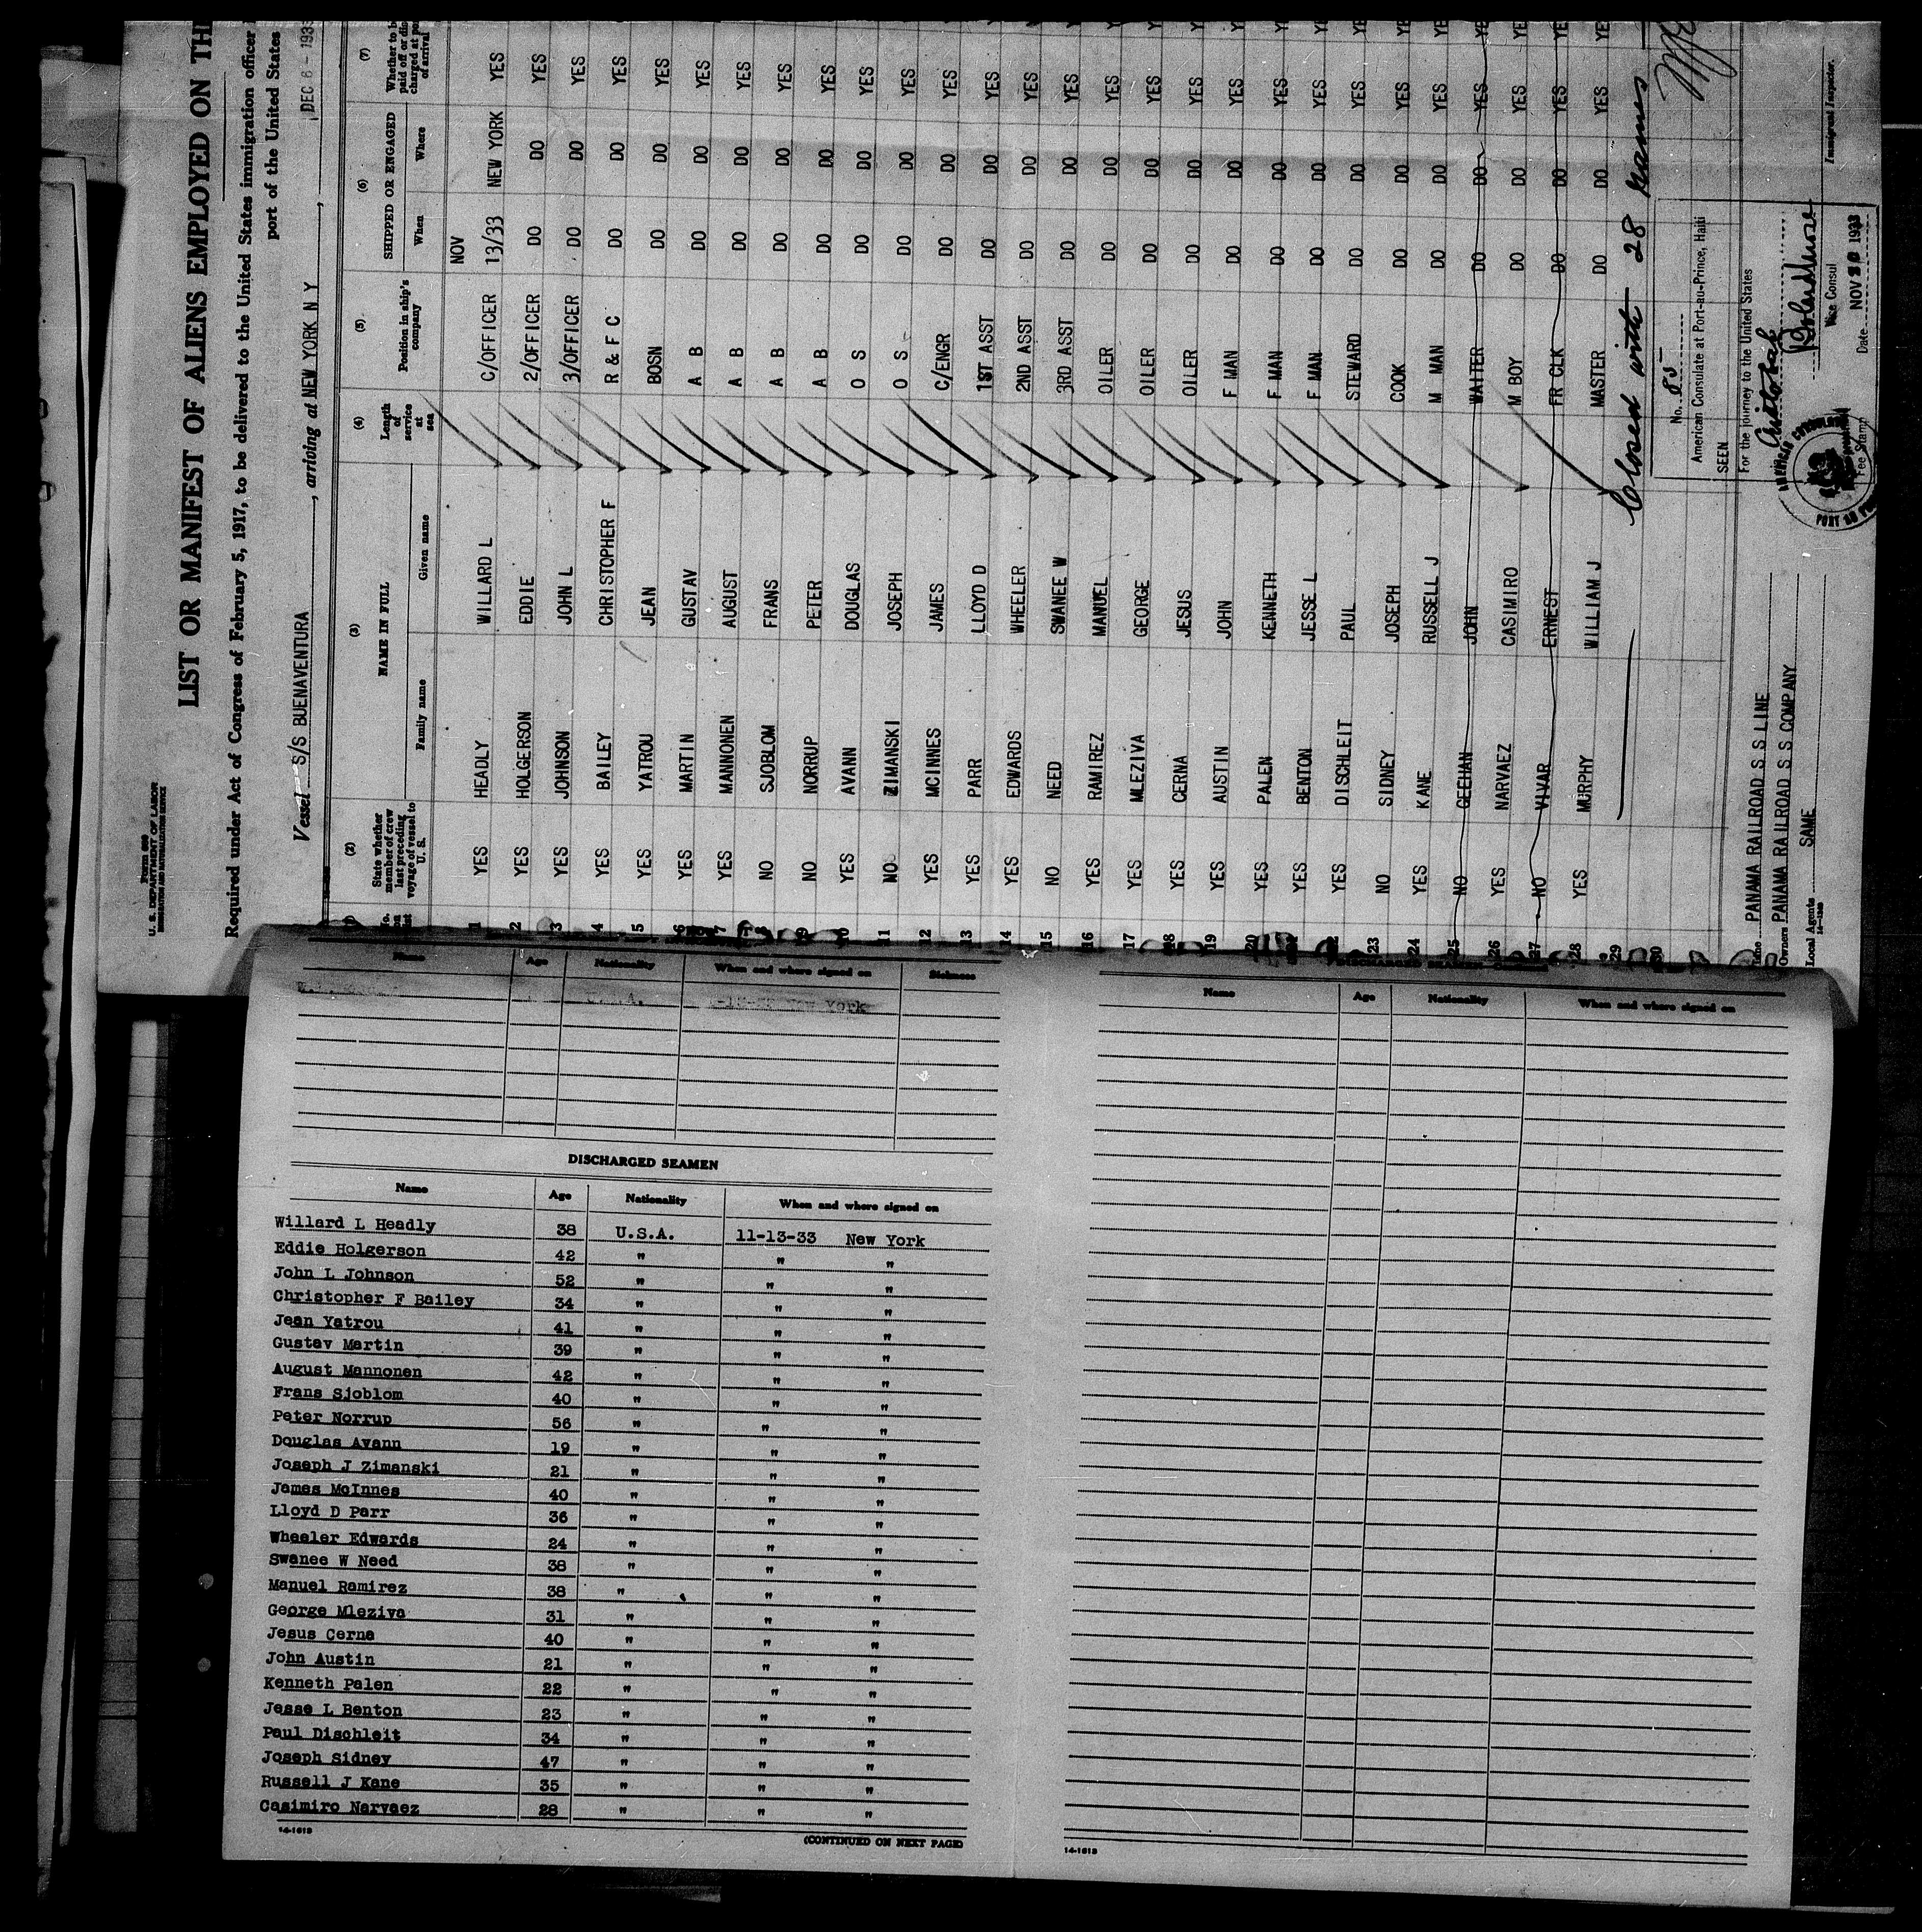 Form 689
U. S. DEPARTMENT OF LABOR
IMMIGRATION AND NATURALIZATION SERVICE
LIST OR MANIFEST OF ALIENS EMPLOYED ON TH
Required under Act of Congress of February 5, 1917, to be delivered to the United States immigration officer
port of the United States
Vessel S/S BUENAVENTURA, arriving at NEW YORK N Y, DEC 6 - 193
(2) (3) (4) (5) (6) (7)
State whether member of crew last preceding voyage of vessel to U. S. NAME IN FULL Length of service at sea Position in ship's company SHIPPED OR ENGAGED Whether to b paid off or dis charged at po of arrival
Family name Given name When Where
NOV
1 YES HEADLY WILLARD L C/OFFICER 13/33 NEW YORK YES
2 YES HOLGERSON EDDIE 2/OFFICER DO DO YES
3 YES JOHNSON JOHN L 3/OFFICER DO DO YES
4 YES BAILEY CHRISTOPHER F R & F C DO DO YES
5 YES YATROU JEAN BOSN DO DO YES
6 YES MARTIN GUSTAV A B DO DO YES
7 YES MANNONEN AUGUST A B DO DO YES
8 NO SJOBLOM FRANS A B DO DO YES
9 NO NORRUP PETER A B DO DO YES
10 YES AVANN DOUGLAS O S DO DO YES
11 NO ZIMANSKI JOSEPH O S DO DO YES
12 YES MCINNES JAMES C/ENGR DO DO YES
13 YES PARR LLOYD D 1ST ASST DO DO YES
14 YES EDWARDS WHEELER 2ND ASST DO DO YES
15 NO NEED SWANEE W 3RD ASST DO DO YES
16 YES RAMIREZ MANUEL OILER DO DO YES
17 YES MLEZIVA GEORGE OILER DO DO YES
18 YES CERNA JESUS OILER DO DO YES
19 YES AUSTIN JOHN F MAN DO DO YES
20 YES PALEN KENNETH F MAN DO DO YES
21 YES BENTON JESSE L F MAN DO DO YES
22 YES DISCHLEIT PAUL STEWARD DO DO YES
23 NO SIDNEY JOSEPH COOK DO DO YES
24 YES KANE RUSSELL J M MAN DO DO YES
25 NO GEEHAN JOHN WAITER DO DO YES
26 YES NARVAEZ CASIMIRO M BOY DO DO YES
27 NO VIVAR ERNEST FR CLK DO DO YES
28 YES MURPHY WILLIAM J MASTER DO DO YES
29 Closed with 28 names
30
No. 85
American Consulate at Port-au-Prince, Haiti
SEEN
For the journey to the United States
Vice Consul
Date NOV 1933
Fee Stamp
Line PANAMA RAILROAD S S LINE
Owners PANAMA RAILROAD S S COMPANY
Local Agents SAME
Immigrant Inspector.
Name Age Nationality When and where signed on Sickness
U.S.A. New York
DISCHARGED SEAMEN
Name Age Nationality When and where signed on
Willard L Headly 38 U.S.A. 11-13-33 New York
Eddie Holgerson 42 " " "
John L Johnson 52 " " "
Christopher F Bailey 34 " " "
Jean Yatrou 41 " " "
Gustav Martin 39 " " "
August Mannonen 42 " " "
Frans Sjoblom 40 " " "
Peter Norrup 56 " " "
Douglas Avann 19 " " "
Joseph J Zimanski 21 " " "
James McInnes 40 " " "
Lloyd D Parr 36 " " "
Wheeler Edwards 24 " " "
Swanee W Need 38 " " "
Manuel Ramirez 38 " " "
George Mleziva 31 " " "
Jesus Cerna 40 " " "
John Austin 21 " " "
Kenneth Palen 22 " " "
Jesse L Benton 23 " " "
Paul Dischleit 34 " " "
Joseph Sidney 47 " " "
Russell J Kane 35 " " "
Casimiro Narvaez 28 " " "
14-1619
(CONTINUED ON NEXT PAGE)
Name Age Nationality When and where signed on
14-1619